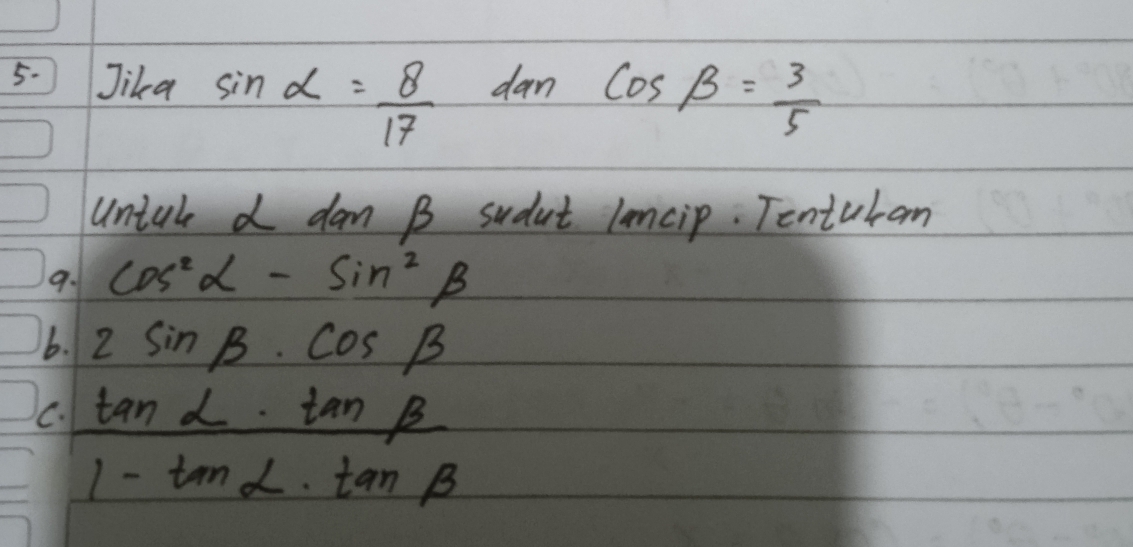 5. Jika sin α = 8/17 dan Cos β = 3/5
Untuk α dan β sudut lancip. Tentukan
a. Cos² α - Sin² β
b. 2 Sin β . Cos β
c. tan α . tan β
1 - tan α . tan β